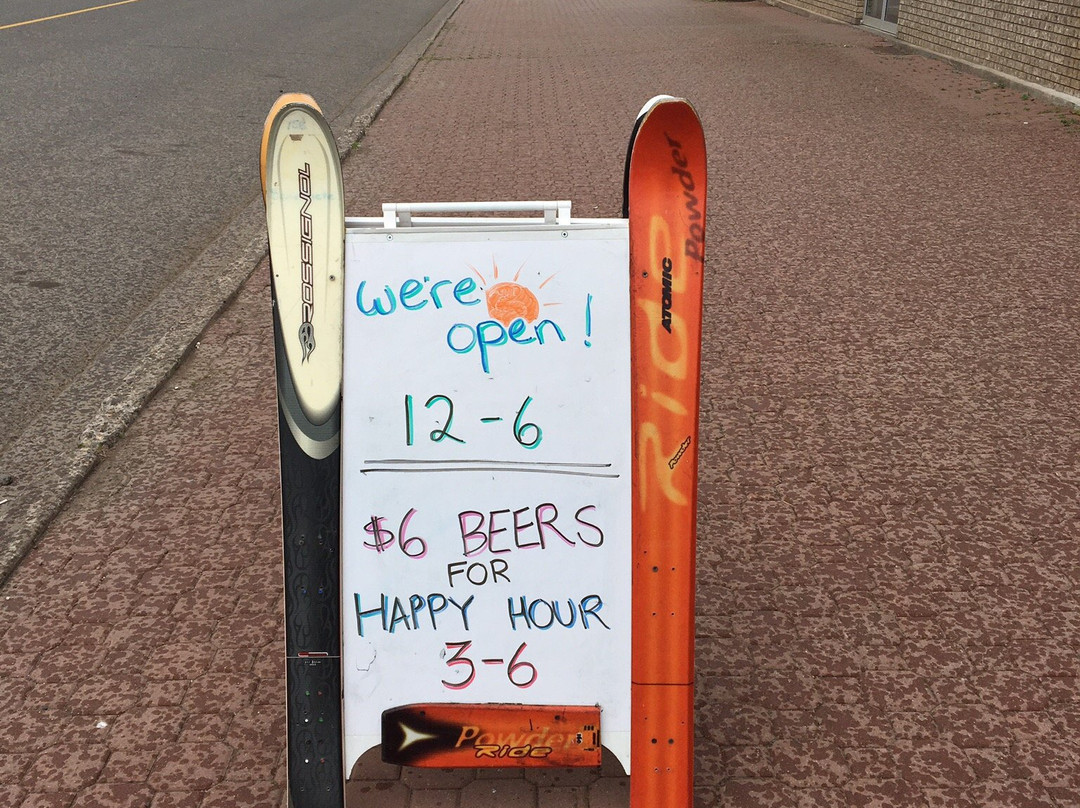 ROSSIGNOL
we're
open!
12-6
$6 BEERS
FOR
HAPPY HOUR
3-6
Powder
Ride
Powder
ATOMIC
Ride
Powder